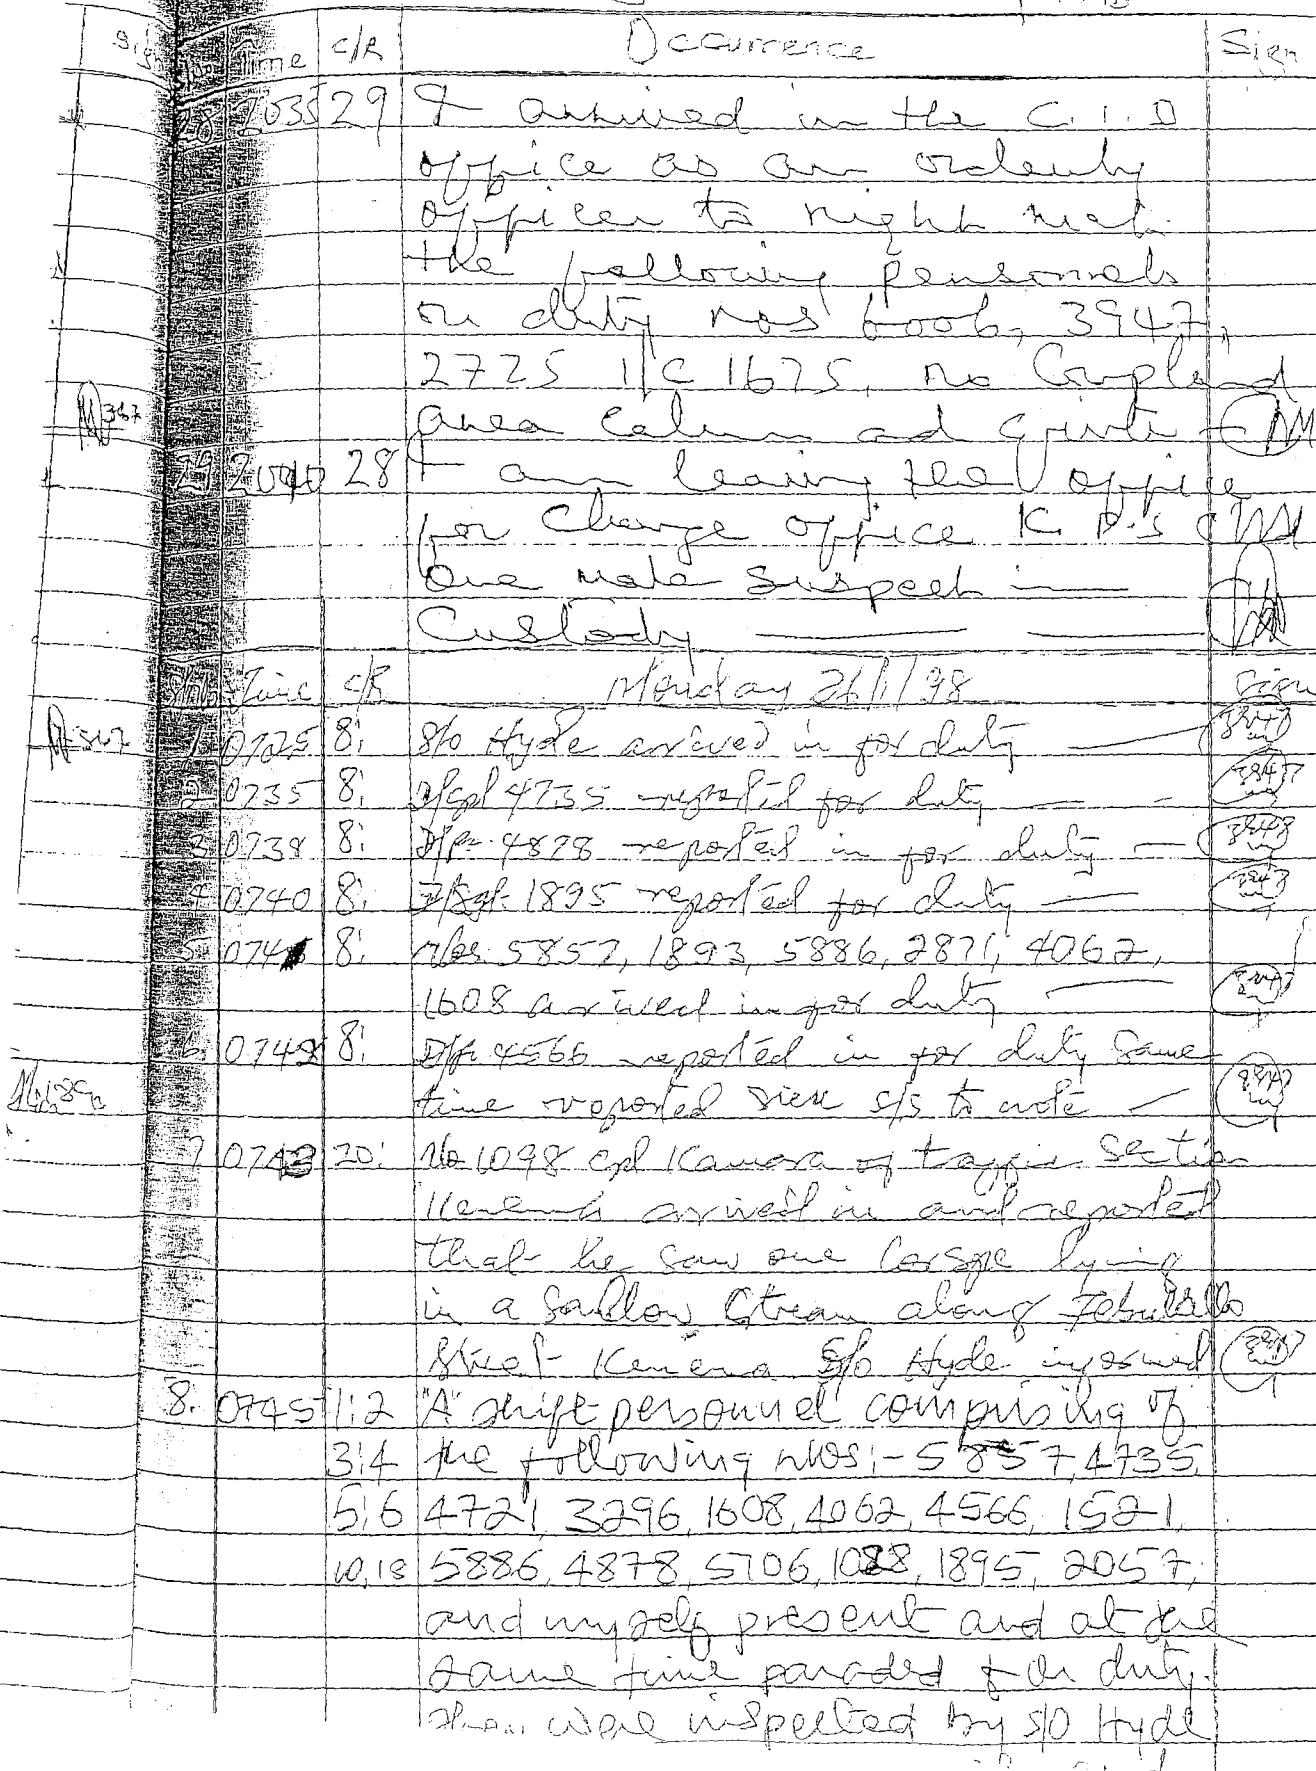 Time C/R Occurrence Sign
28 2035 29 I arrived in the C.I.D
office as an orderly
officer to night met
the following personnels
on duty nos 6006, 3947,
2725 I/C 1675, no Coupland
area calm and quiet
29 2040 28 I am leaving the office
for Charge office K.P.S
One male suspect in
Custody
Time C/R Monday 26/1/98 Sign
1 0725 8: S/o Hyde arrived in for duty
2 0735 8: D/Cpl 4735 reported for duty
3 0738 8: D/Pc 4878 reported in for duty
4 0740 8: D/Sgt 1895 reported for duty
5 074 8: Nos 5857, 1893, 5886, 2871, 4062,
1608 arrived in for duty
6 0742 8: D/Pc 4566 reported in for duty Same
time reported sick s/s to note
7 0743 20: No 1098 Cpl Kamara of traffic Section
Kenema arrived in and reported
that he saw one Corspe lying
in a Sallow Stream along
Street Kenema S/o Hyde informed
8. 0745 1:2 "A" shift personnel comprising of
3:4 the following nos:- 5857, 4735,
5:6 4721, 3296, 1608, 4062, 4566, 1521,
10,18 5886, 4878, 5706, 1088, 1895, 2057,
and myself present and at the
same time paraded for duty.
were inspected by s/o Hyde